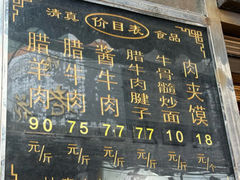 清真 价目表 食品
腊羊肉 90 元/斤
腊牛肉 75 元/斤
酱牛肉 77 元/斤
腊牛肉腱子 77 元/斤
牛骨髓炒面 10 元/斤
肉夹馍 18 元/个